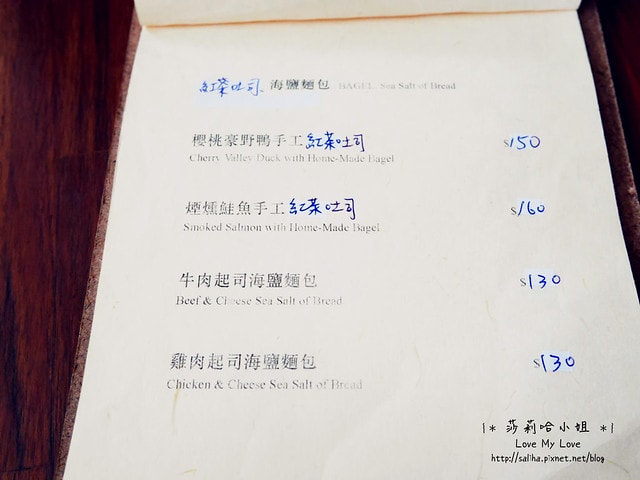 紅茶吐司 海鹽麵包 BAGEL Sea Salt of Bread
櫻桃豪野鴨手工紅茶吐司 $150
Cherry Valley Duck with Home-Made Bagel
煙燻鮭魚手工紅茶吐司 $160
Smoked Salmon with Home-Made Bagel
牛肉起司海鹽麵包 $130
Beef & Cheese Sea Salt of Bread
雞肉起司海鹽麵包 $130
Chicken & Cheese Sea Salt of Bread
|* 莎莉哈小姐 *|
Love My Love
http://saliha.pixnet.net/blog